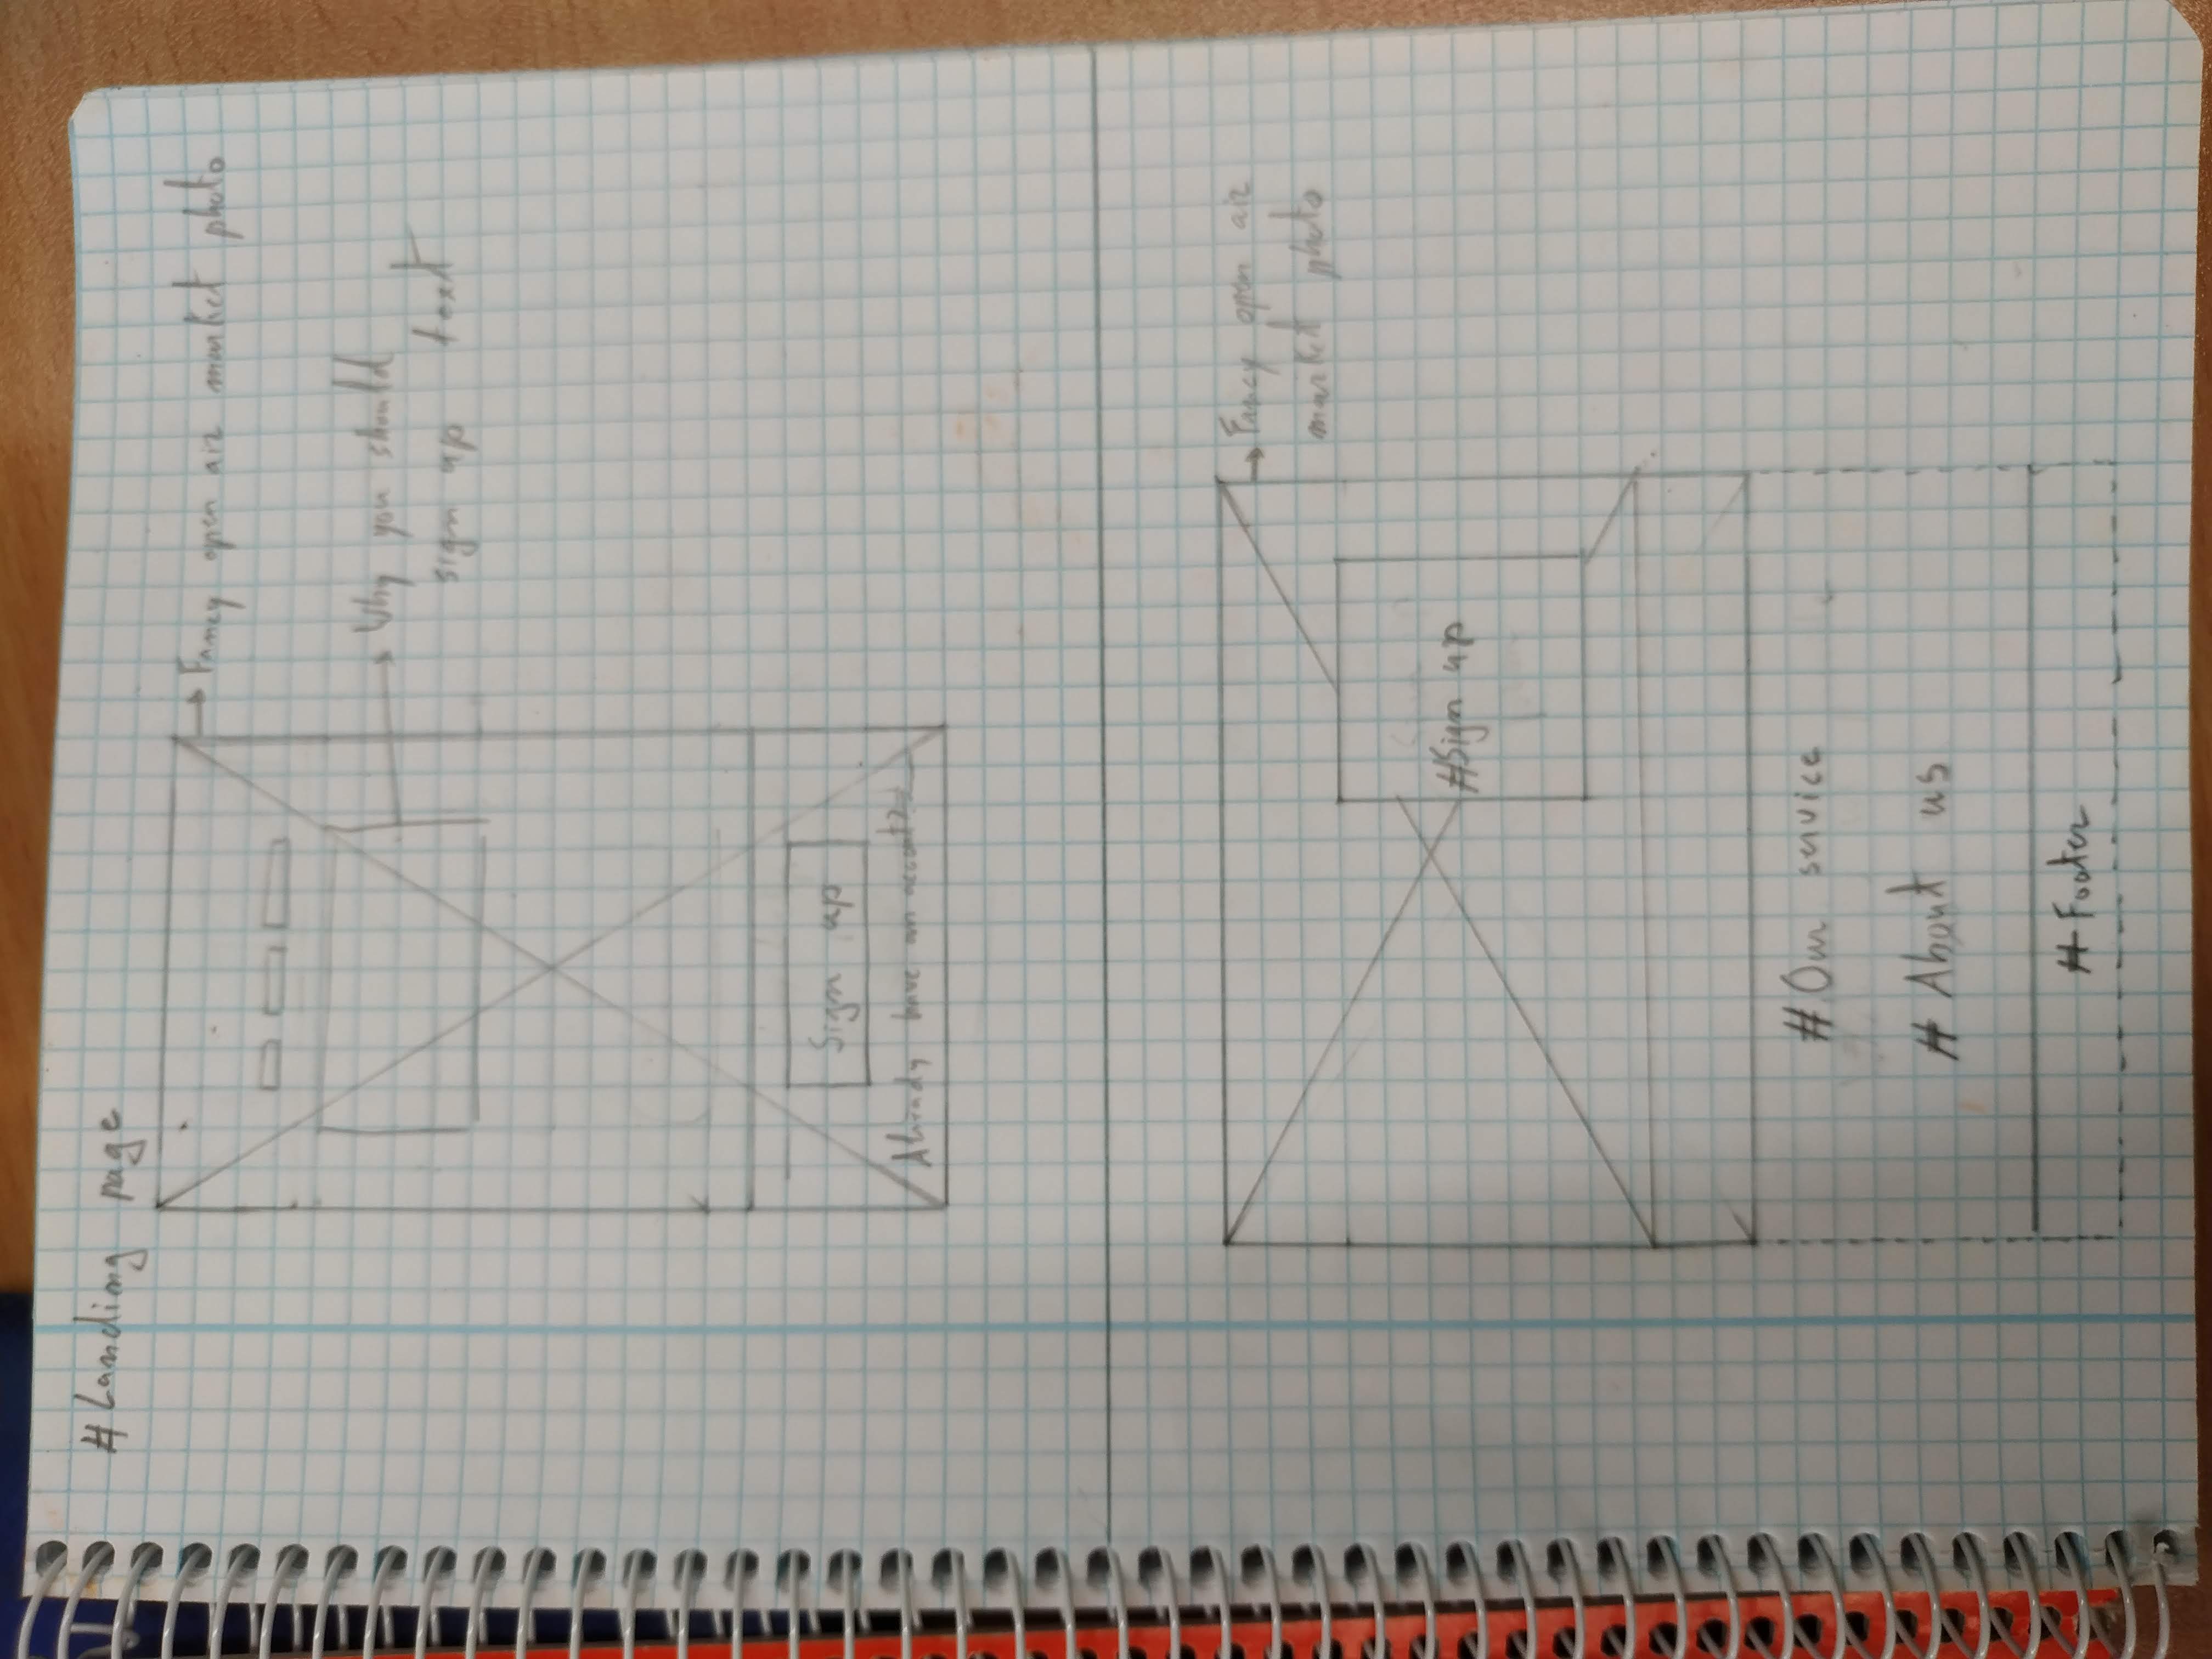 # Landing page
Fancy open air market photo
Why you should
sign up text
Sign up
Already have an account?
Fancy open air
market photo
#Sign up
# Our service
# About us
# Footer